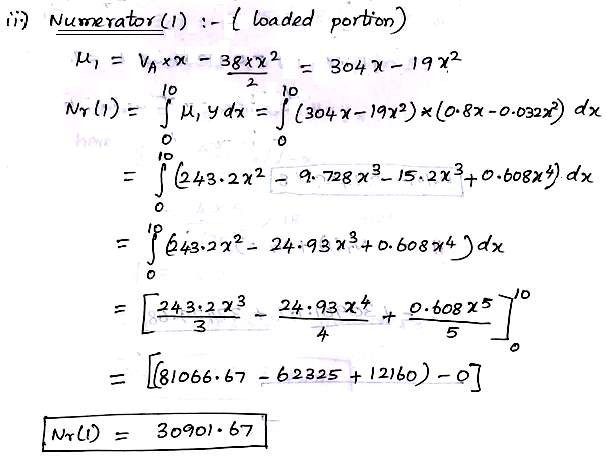 iii) Numerator (1) :- ( loaded portion)
μ₁ = V_A × x - 38×x²/2 = 304 x - 19x²
Nr (1) = ∫₀¹⁰ μ₁ y dx = ∫₀¹⁰ (304x - 19x²) * (0.8x - 0.032x²) dx
= ∫₀¹⁰ (243.2x² - 9.728x³ - 15.2x³ + 0.608x⁴) dx
= ∫₀¹⁰ (243.2x² - 24.93x³ + 0.608x⁴) dx
= [243.2x³/3 - 24.93x⁴/4 + 0.608x⁵/5]₀¹⁰
= [(81066.67 - 62325 + 12160) - 0]
Nr(1) = 30901.67